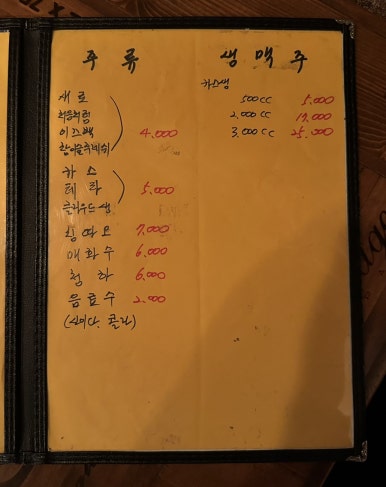 주류
새로
처음처럼
이즈백 4,000
참이슬후레쉬
카스
테라 5,000
클라우드 생
칭따오 7,000
매화수 6,000
청하 6,000
음료수 2,000
(사이다, 콜라)
생맥주
카스생
500cc 5,000
2,000cc 17,000
3,000cc 25,000